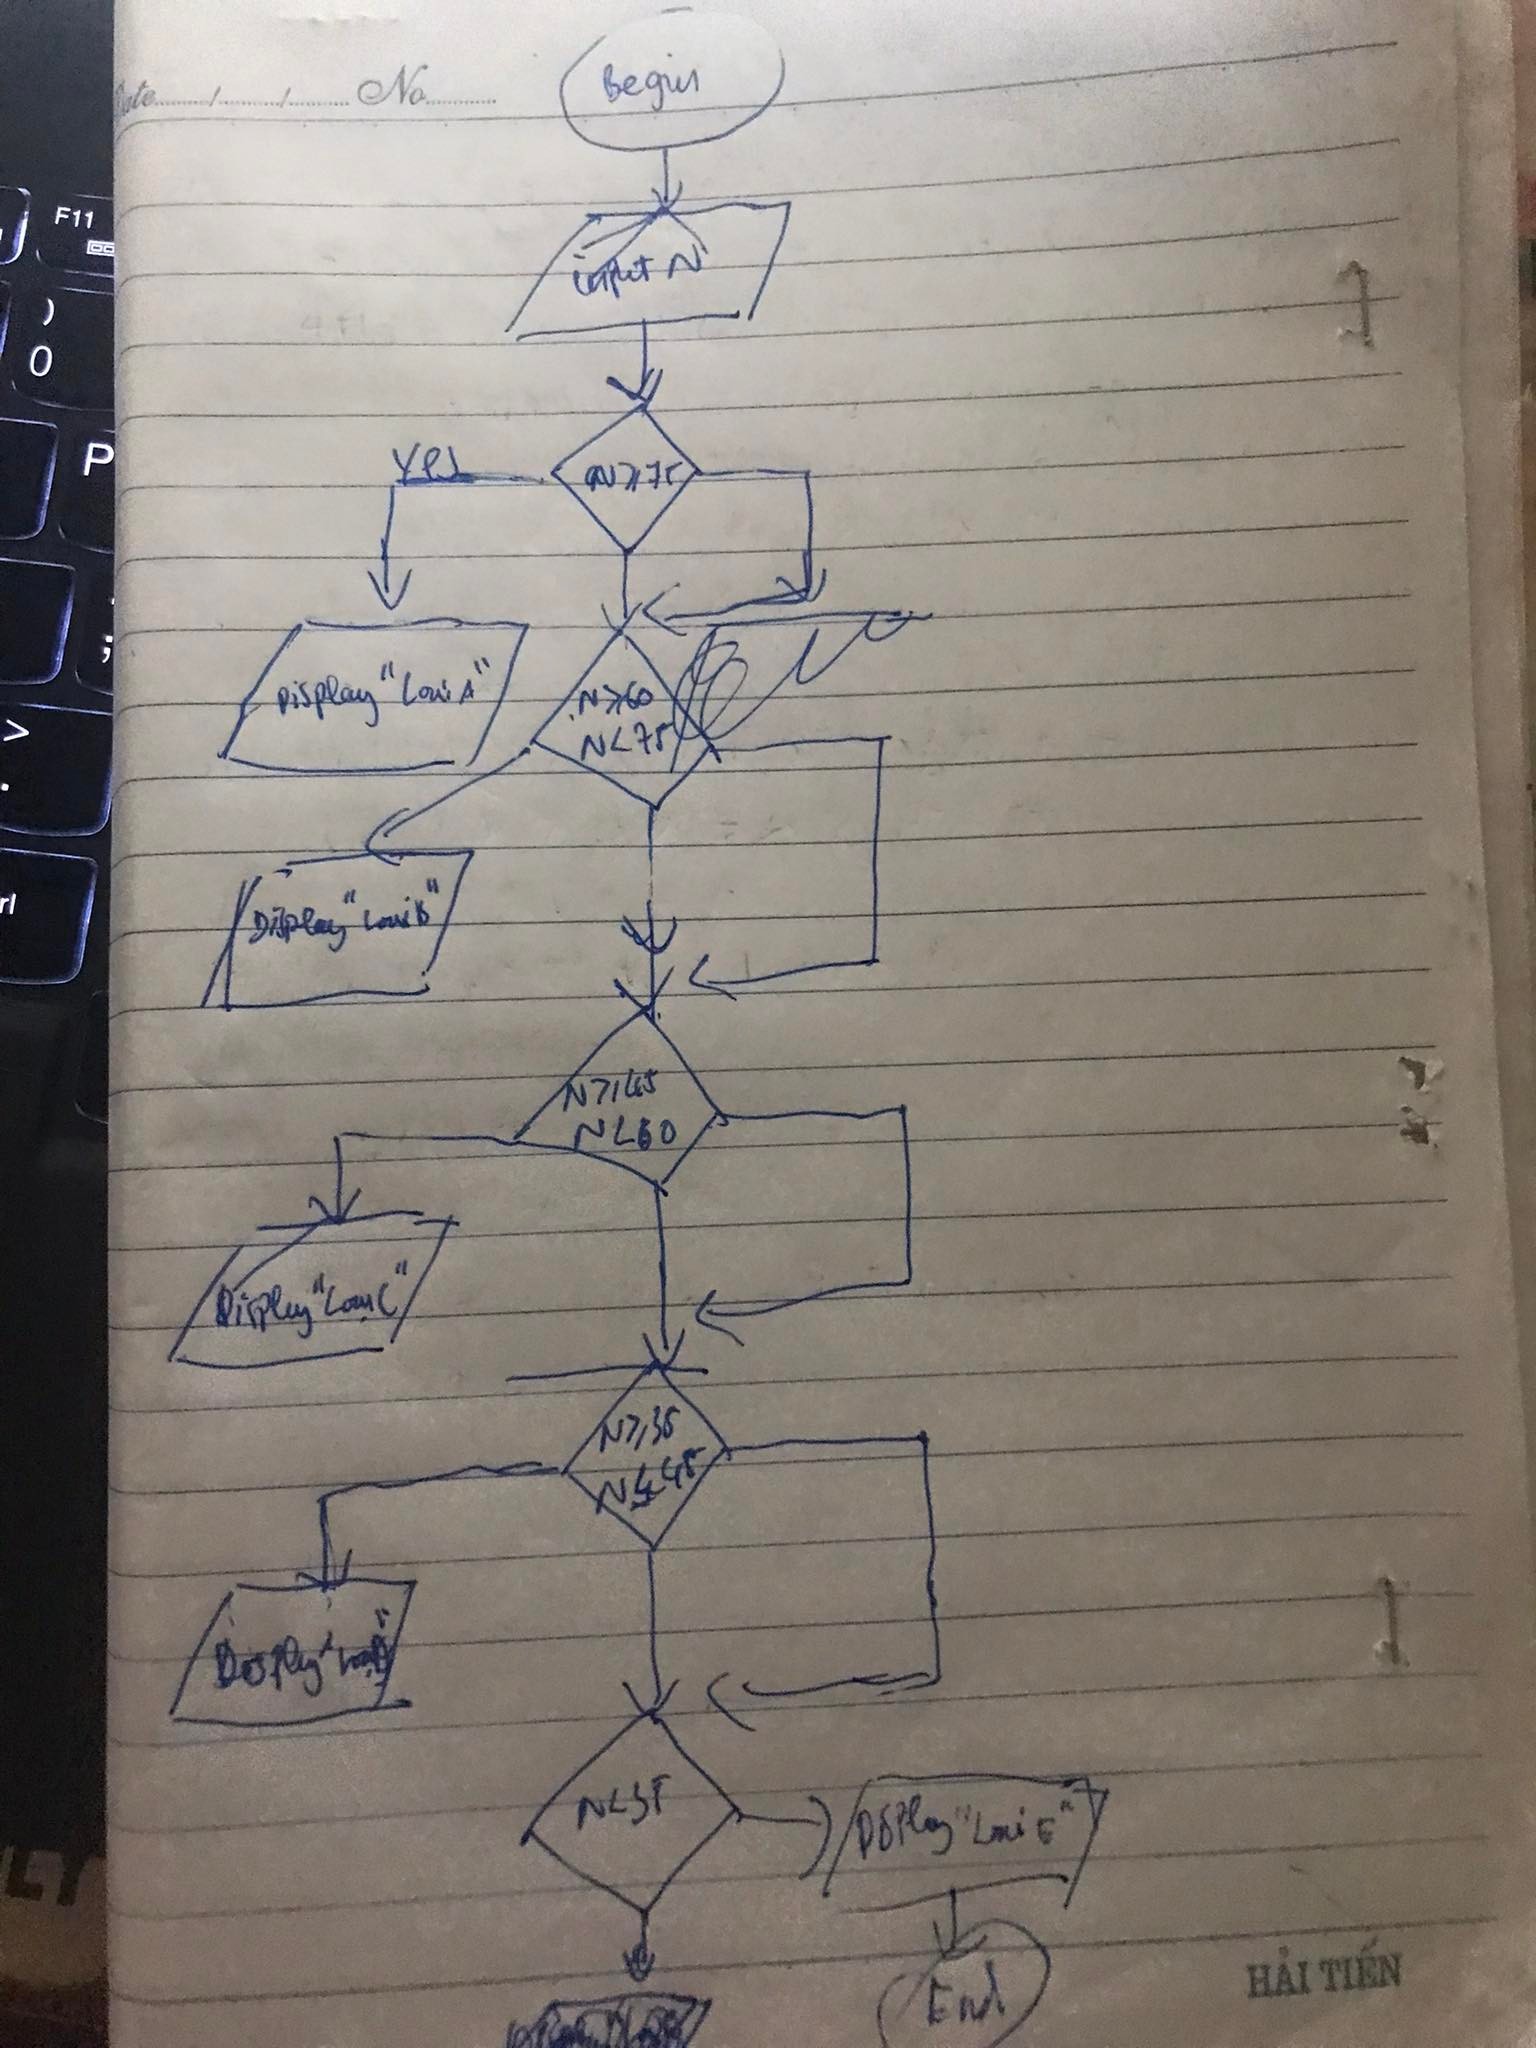 Date / / No
Begin
input N
N≥75
Yes
Display "Loại A"
N≥60
N<75
Display "Loại B"
N≥45
N<60
Display "Loại C"
N≥35
N<45
Display "Loại D"
N<35
Display "Loại E"
End
HẢI TIẾN
F11
)
0
P
;
>
.
rl